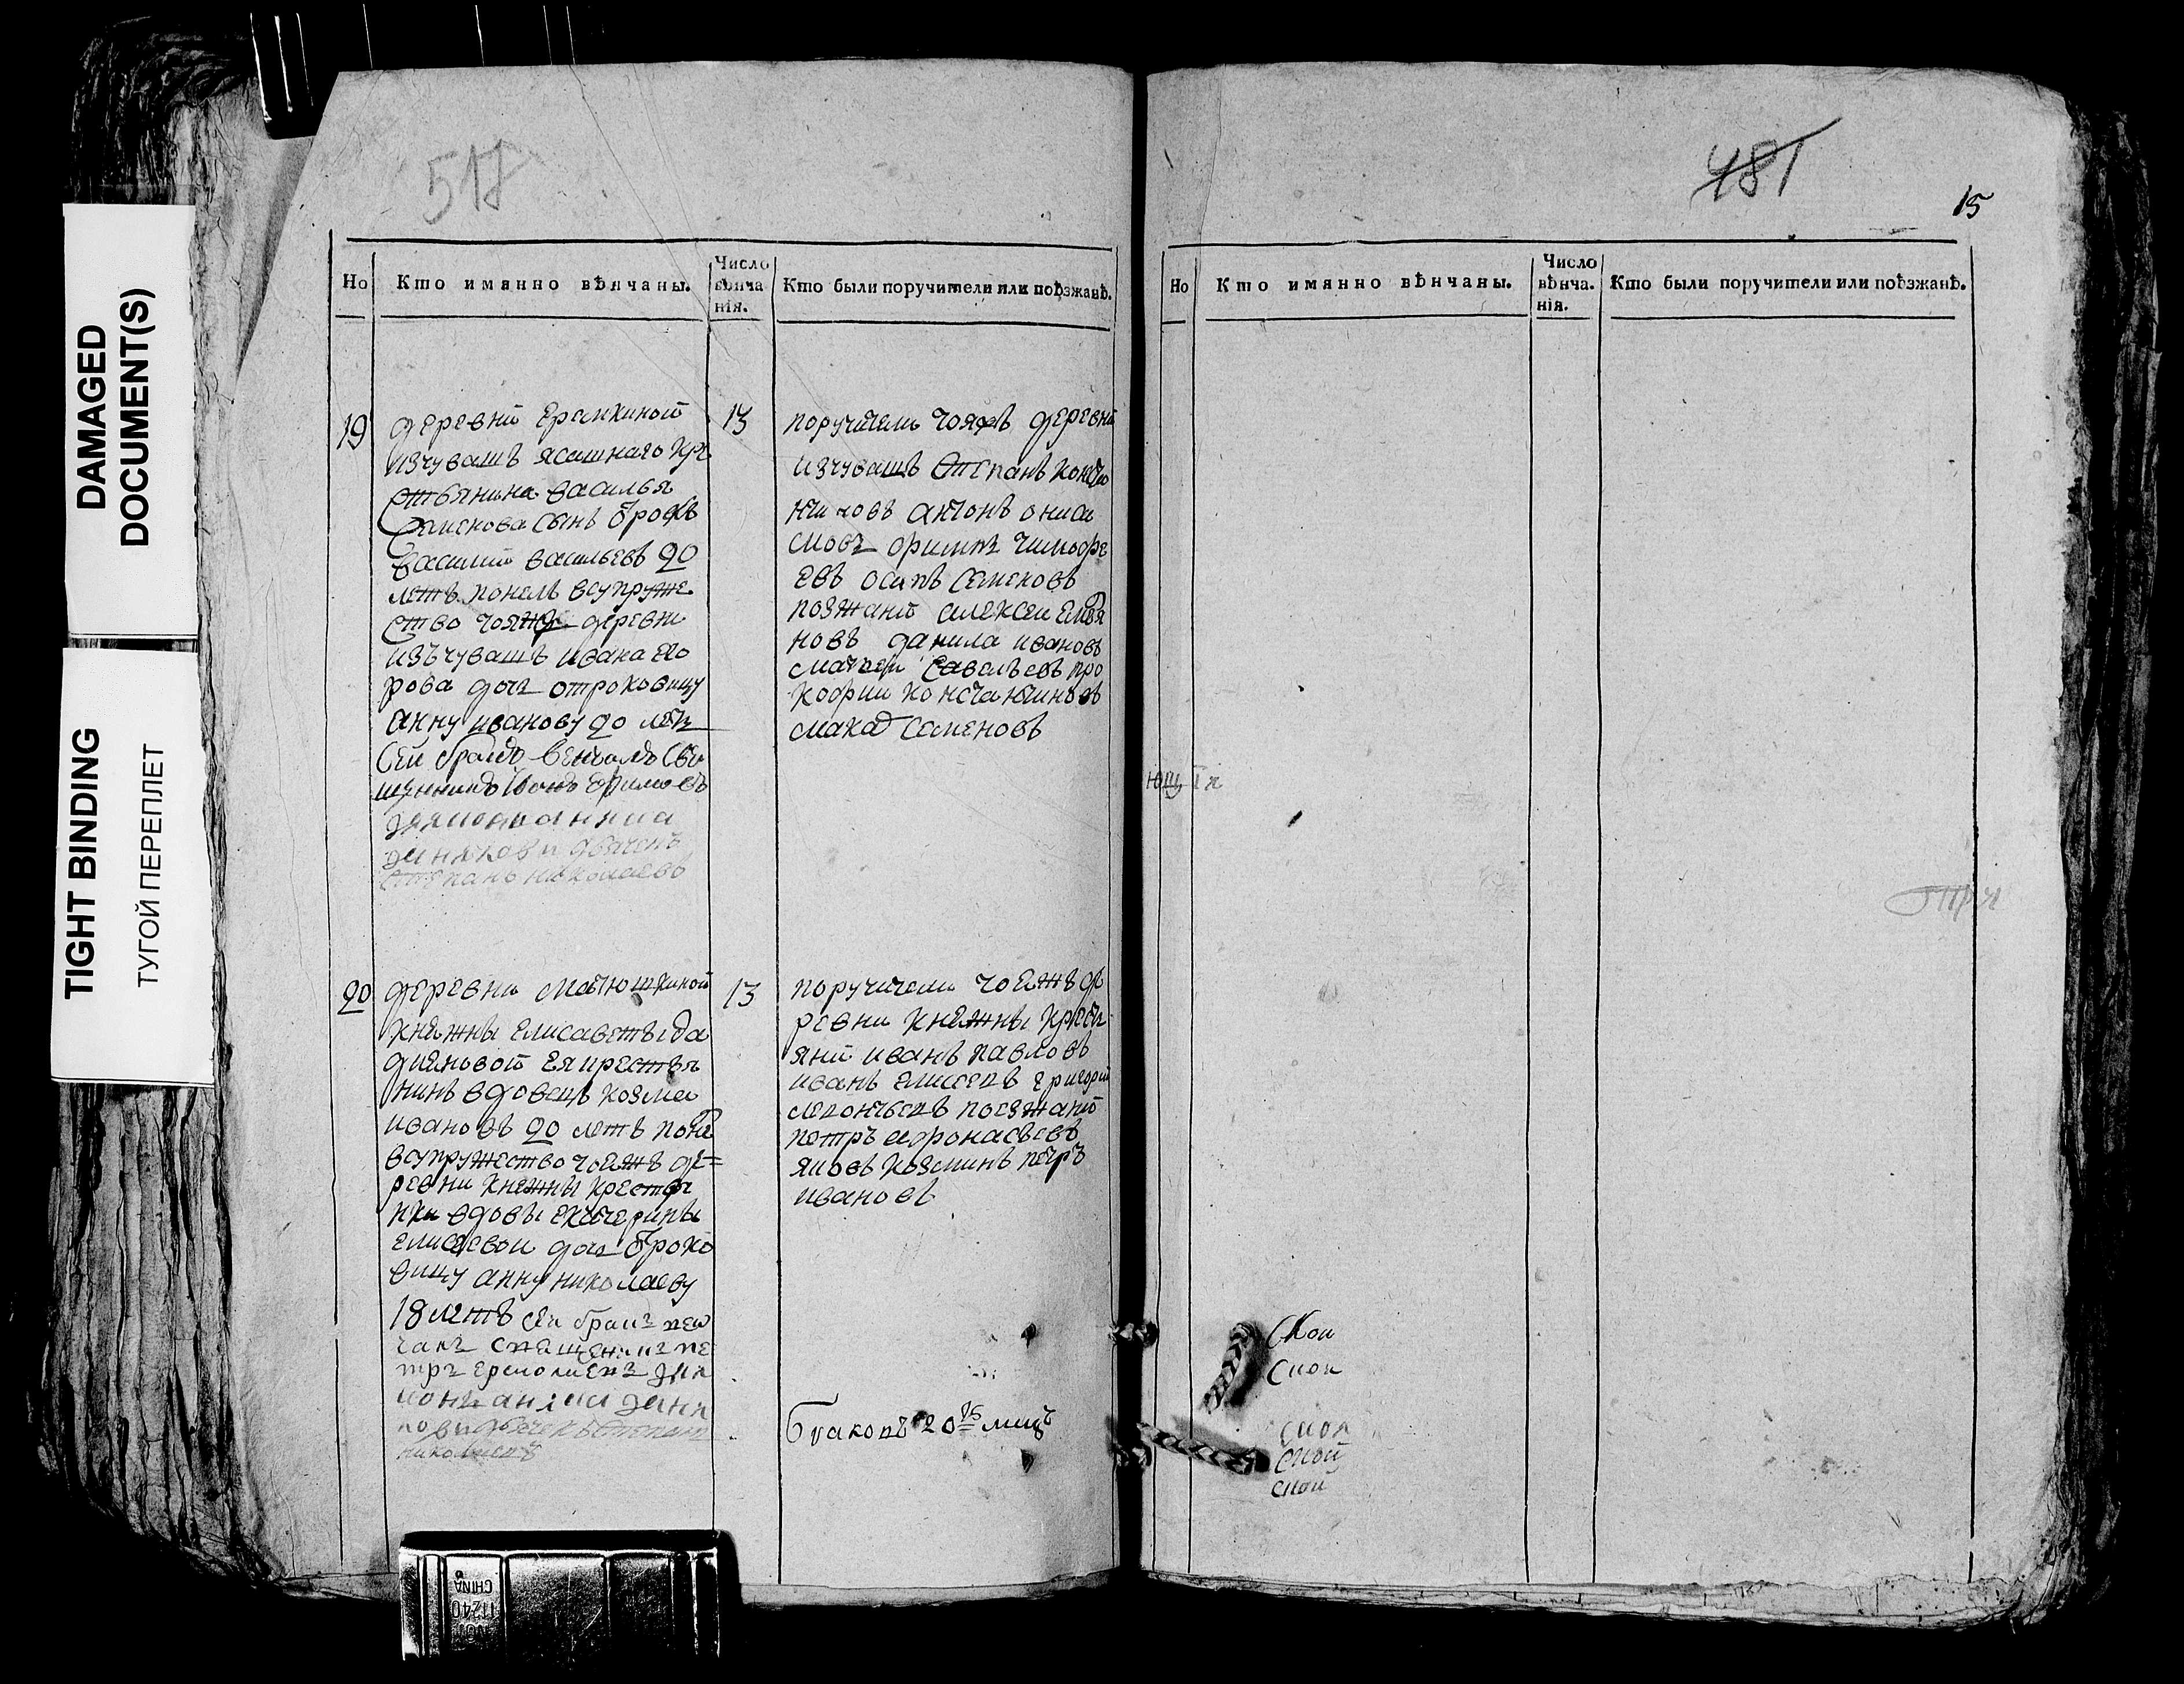 DAMAGED
DOCUMENT(S)
TIGHT BINDING
ТУГОЙ ПЕРЕПЛЕТ
518
Но
Кто имянно вѣнчаны.
Число
вѣнча
нія.
Кто были поручители или поѣзжанѣ.
19
деревни Еремкиной
изчувашъ ясашнаго кре
стьянина василья
Семенова сынъ отрокъ
василий васильевъ 20
летъ понелъ всупруже
ство тояжде деревни
изъчувашъ ивана его
рова дочь отроковицу
анну иванову 20 летъ
Сей бракъ венчалъ Све
щенникъ
степанъ николаевъ
13
поручители тояжъ деревни
изчувашъ Степанъ
антонъ ониси
мовъ филипъ тимофе
евъ осипъ семеновъ
поезжани алексеи
новъ данила ивановъ
матвеи савельевъ про
кофии константиновъ
макаръ семеновъ
20
деревни матюшкиной
княжны елисаветы да
диановой ея крестья
нинъ вдовецъ козма
ивановъ 20 летъ понелъ
всупружество тоежъ де=
ревни княжны крестья
нки вдовы екатерины
елисеевои дочь отроко
вицу анну николаеву
18 летъ сеи бракъ вен
чалъ священникъ пе
тръ ермолаевъ
николаевъ
13
поручители тоежъ де
ревни княжны крестъ
яни иванъ павловъ
иванъ елисеевъ григорий
леонтьевъ поезжанѣ
петръ афонасьевъ
яковъ козминъ петръ
ивановъ
браковъ 20
481
15
Но
Кто имянно вѣнчаны.
Число
вѣнча.
нія.
Кто были поручители или поѣзжанѣ.